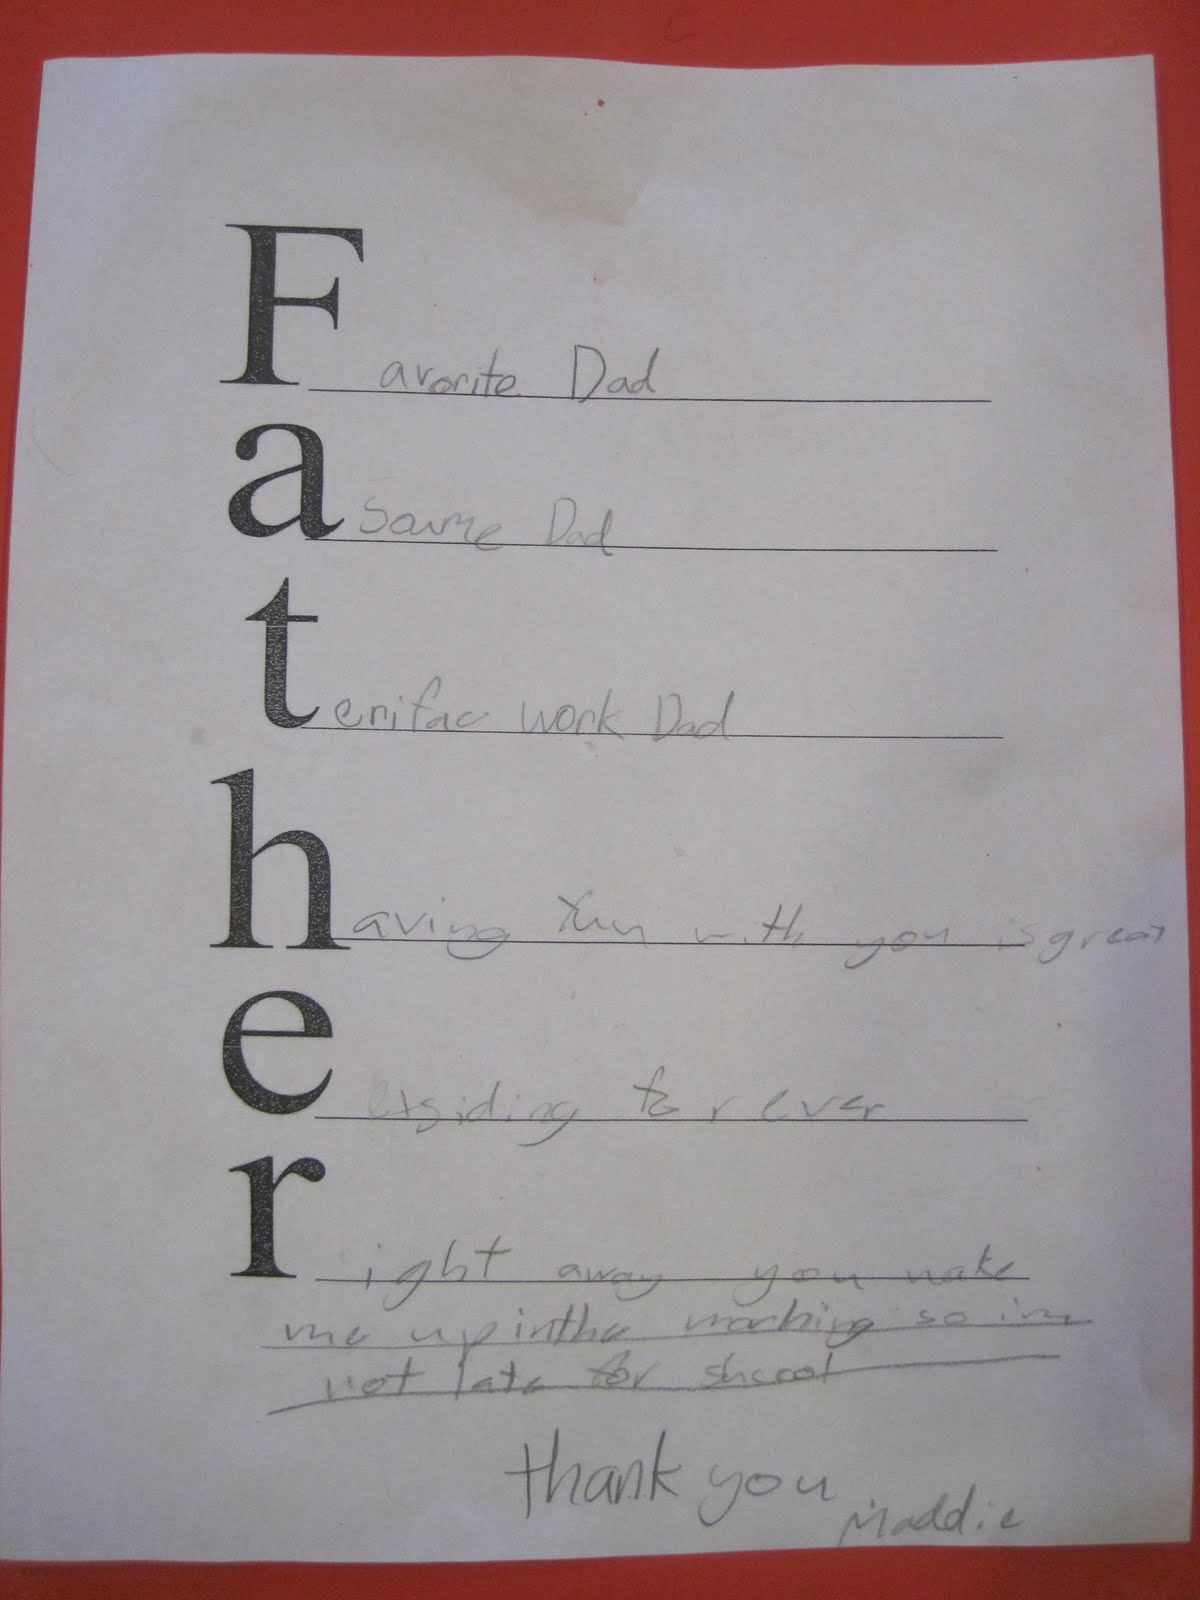 Favorite Dad
asoume Dad
terrifac work Dad
having fun with you is great
exsiding for ever
right away you wake
me up in the morning so im
not late for shcool
thank you
Maddie